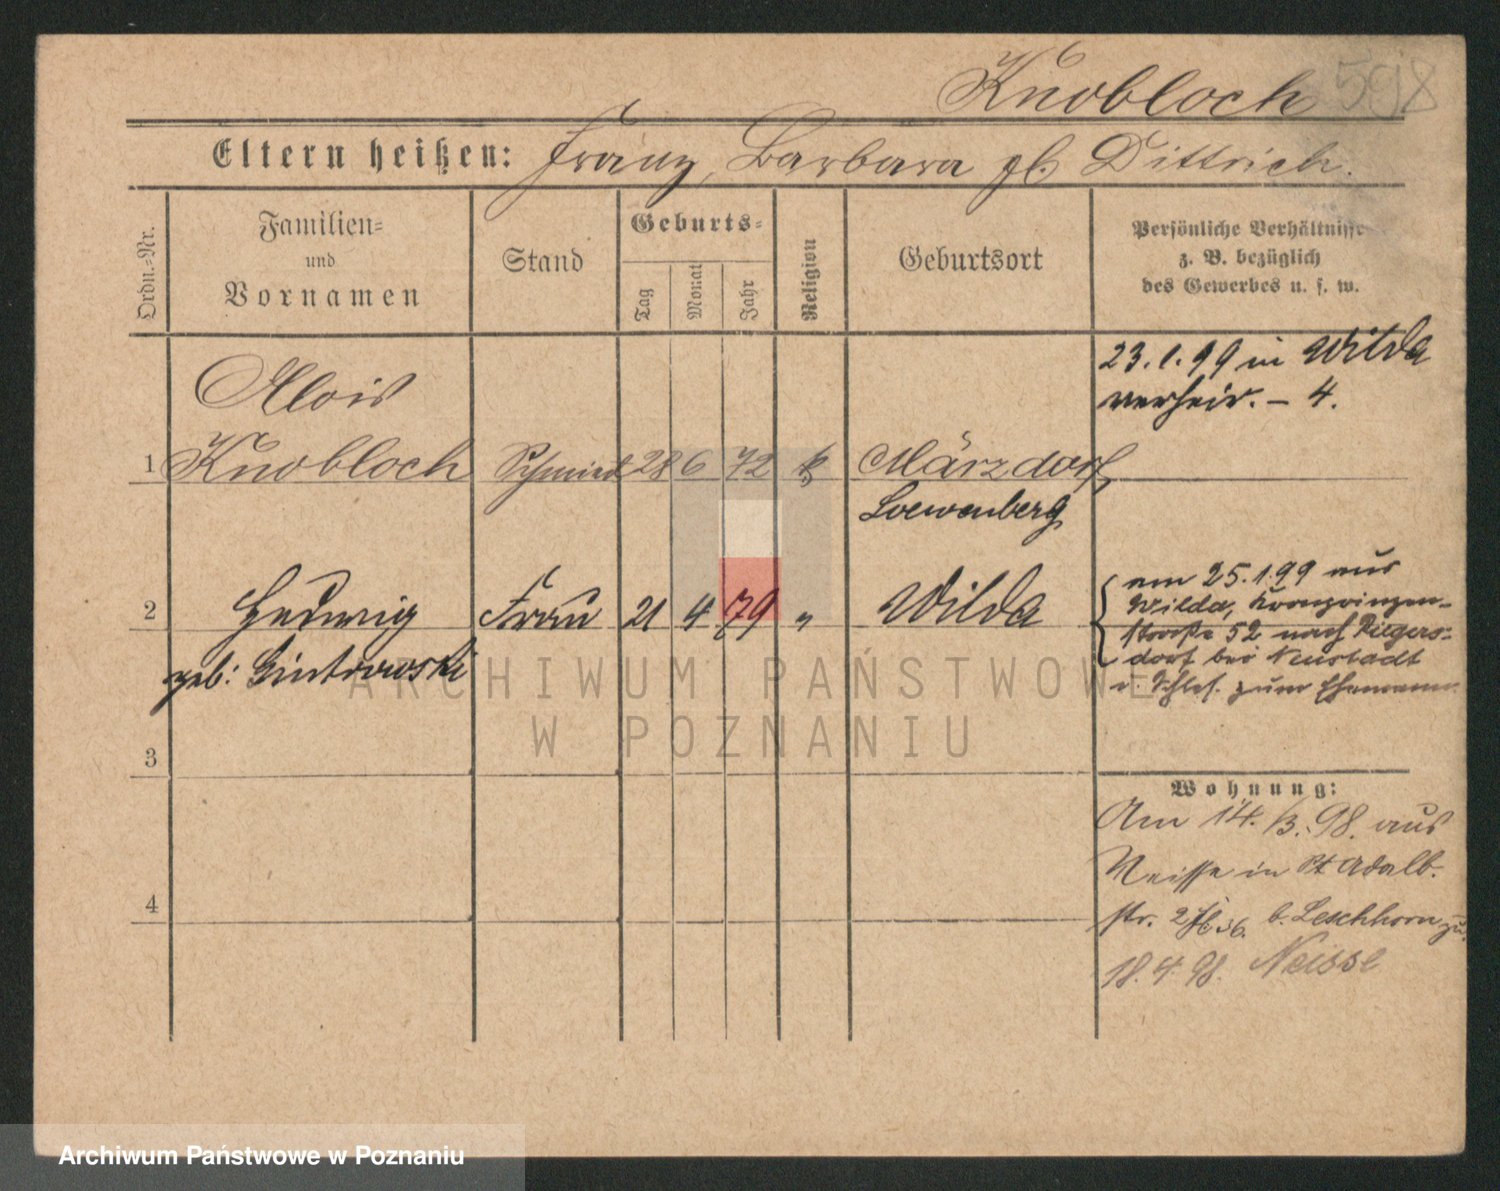 Knobloch 598
Eltern heißen: Franz, Barbara gb. Dittrich.
Ordn.-Nr.
Familien-
und
Vornamen
Stand
Geburts-
Tag
Monat
Jahr
Religion
Geburtsort
Persönliche Verhältnisse
z. B. bezüglich
des Gewerbes u. s. w.
23.1.99 in Wilda
verheir. – 4.
Alois
1 Knobloch Schmied 28 6 72 k Märzdorf
Loewenberg
2 Hedwig Frau 21 4 79 " Wilda
geb: Gintrowski
am 25.1.99 aus
Wilda, Kronprinzen-
straße 52 nach Riegers-
dorf bei Neustadt
o. Schles. zum Ehemann
3
Wohnung:
Am 14./3. 98. aus
Neisse in St Adalb.
str. 2 b. Leschhorn zu.
4
18.4.98. Neisse
ARCHIWUM PAŃSTWOWE
W POZNANIU
Archiwum Państwowe w Poznaniu